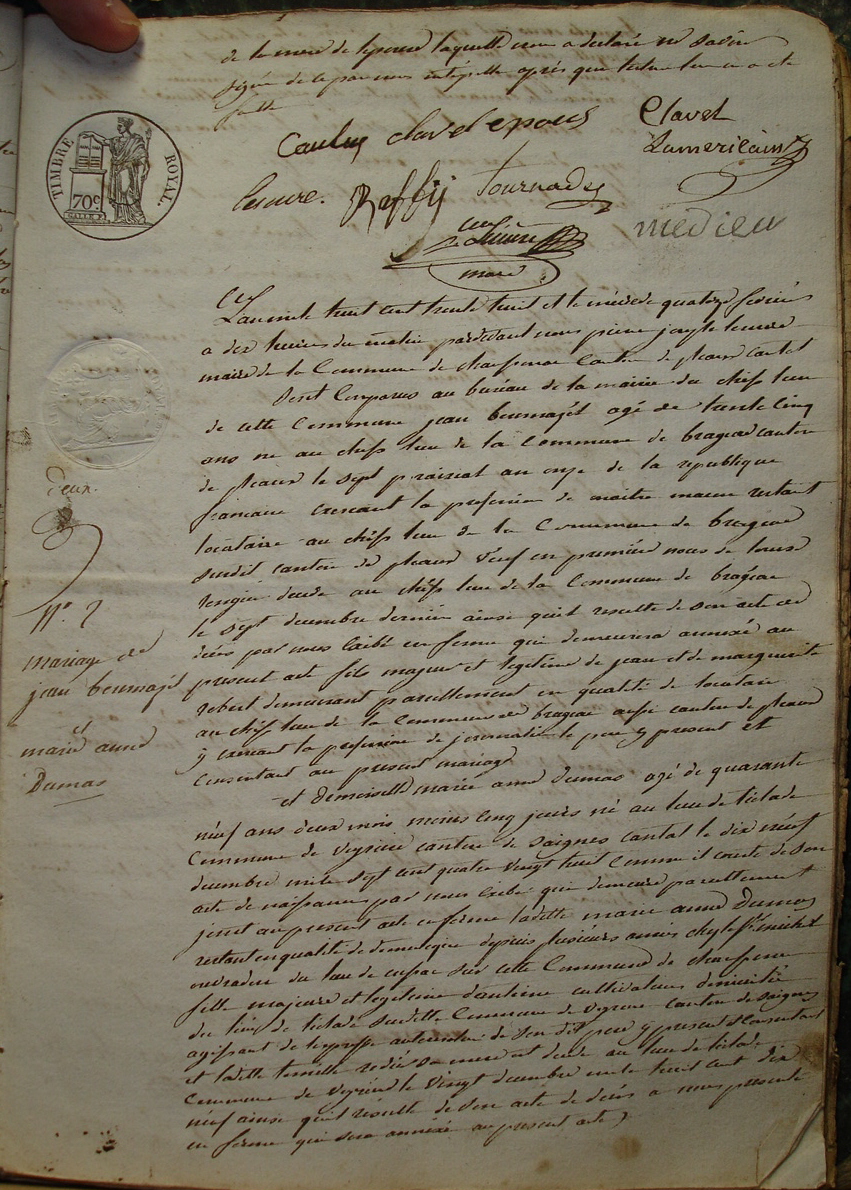 de la mere de lepouse laquelle nous a declaré ne savoir
signer de ce par nous interpellé après que lecture leur en a été
faitte
TIMBRE ROYAL.
70c
caulus clavel epous
Clavel
Lamericain
lesuvre. Reffy tournade
medieu
maire
L'an mil huit cent trente huit et le mecredi quatorze fevrier
a dix heures du matin pardevant nous pierre joseph
maire de la Commune de canton de pleaux cantal
Sont Comparus au bureau de la mairie du chef lieu
de cette Commune jean bournazel agé de trente cinq
ans né au chef lieu de la Commune de brageac canton
de pleaux le sept prairial an onze de la republique
francaise exercant la profession de maitre macon restant
locataire au chef lieu de la Commune de brageac
susdit canton de pleaux veuf en première noces de
decedé au chef lieu de la Commune de brageac
le sept decembre dernier ainsi qu'il resulte de son acte de
décès par nous en forme qui demeurera annexé au
present acte fils majeur et legitime de jean et de marguerite
robert demeurant pareillement en qualité de locataire
au chef lieu de la Commune de brageac aussi canton de pleaux
y exercant la profession de journalier le pere y present et
consentant au present mariage
et demoiselle marie anne dumas agé de quarante
neuf ans deux mois moins cinq jours né au lieu de
Commune de veyrière canton de Saignes cantal le dix neuf
decembre mile sept cent quatre vingt huit Comme il conste de son
acte de naissance par nous qui demeure pareillement
joint au present acte en forme ladite marie anne Dumas
restant en qualité de domestique depuis plusieurs années chez le Sr michel
du lieu de sur cette Commune de
fille majeure et legitime d'antoine cultivateur domicilié
du lieu de susditte Commune de veyriere canton de Saignes
agissant de l'expresse autorisation de son dit pere y present et Consentant
et ladite sa mere est decedé au lieu de
Commune de veyriere le vingt decembre mile huit cent dix
neuf ainsi qu'il resulte de son acte de décès a nous presenté
en forme qui sera annexé au present acte
deux.
No. 2
mariage de
jean bournazel
et
marie anne
Dumas